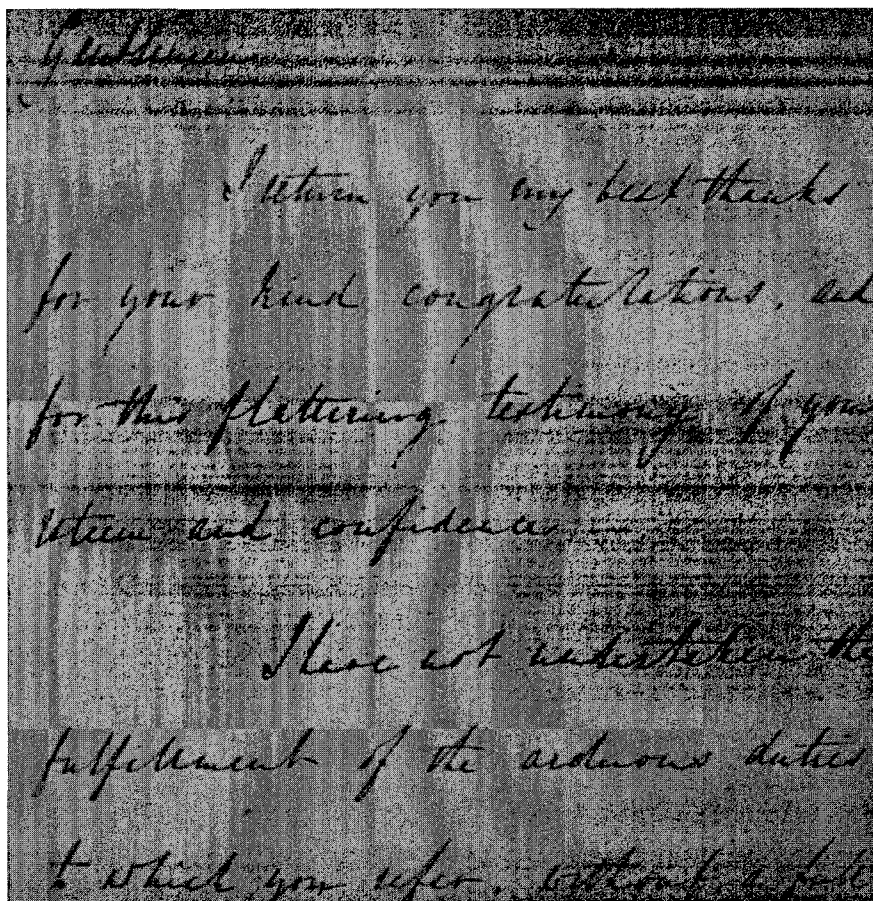 Gentlemen
I return you my best thanks
for your kind congratulations, and
for this flattering testimony of your
esteem and confidence.
I have not undertaken the
fulfillment of the arduous duties
to which you refer, without a full